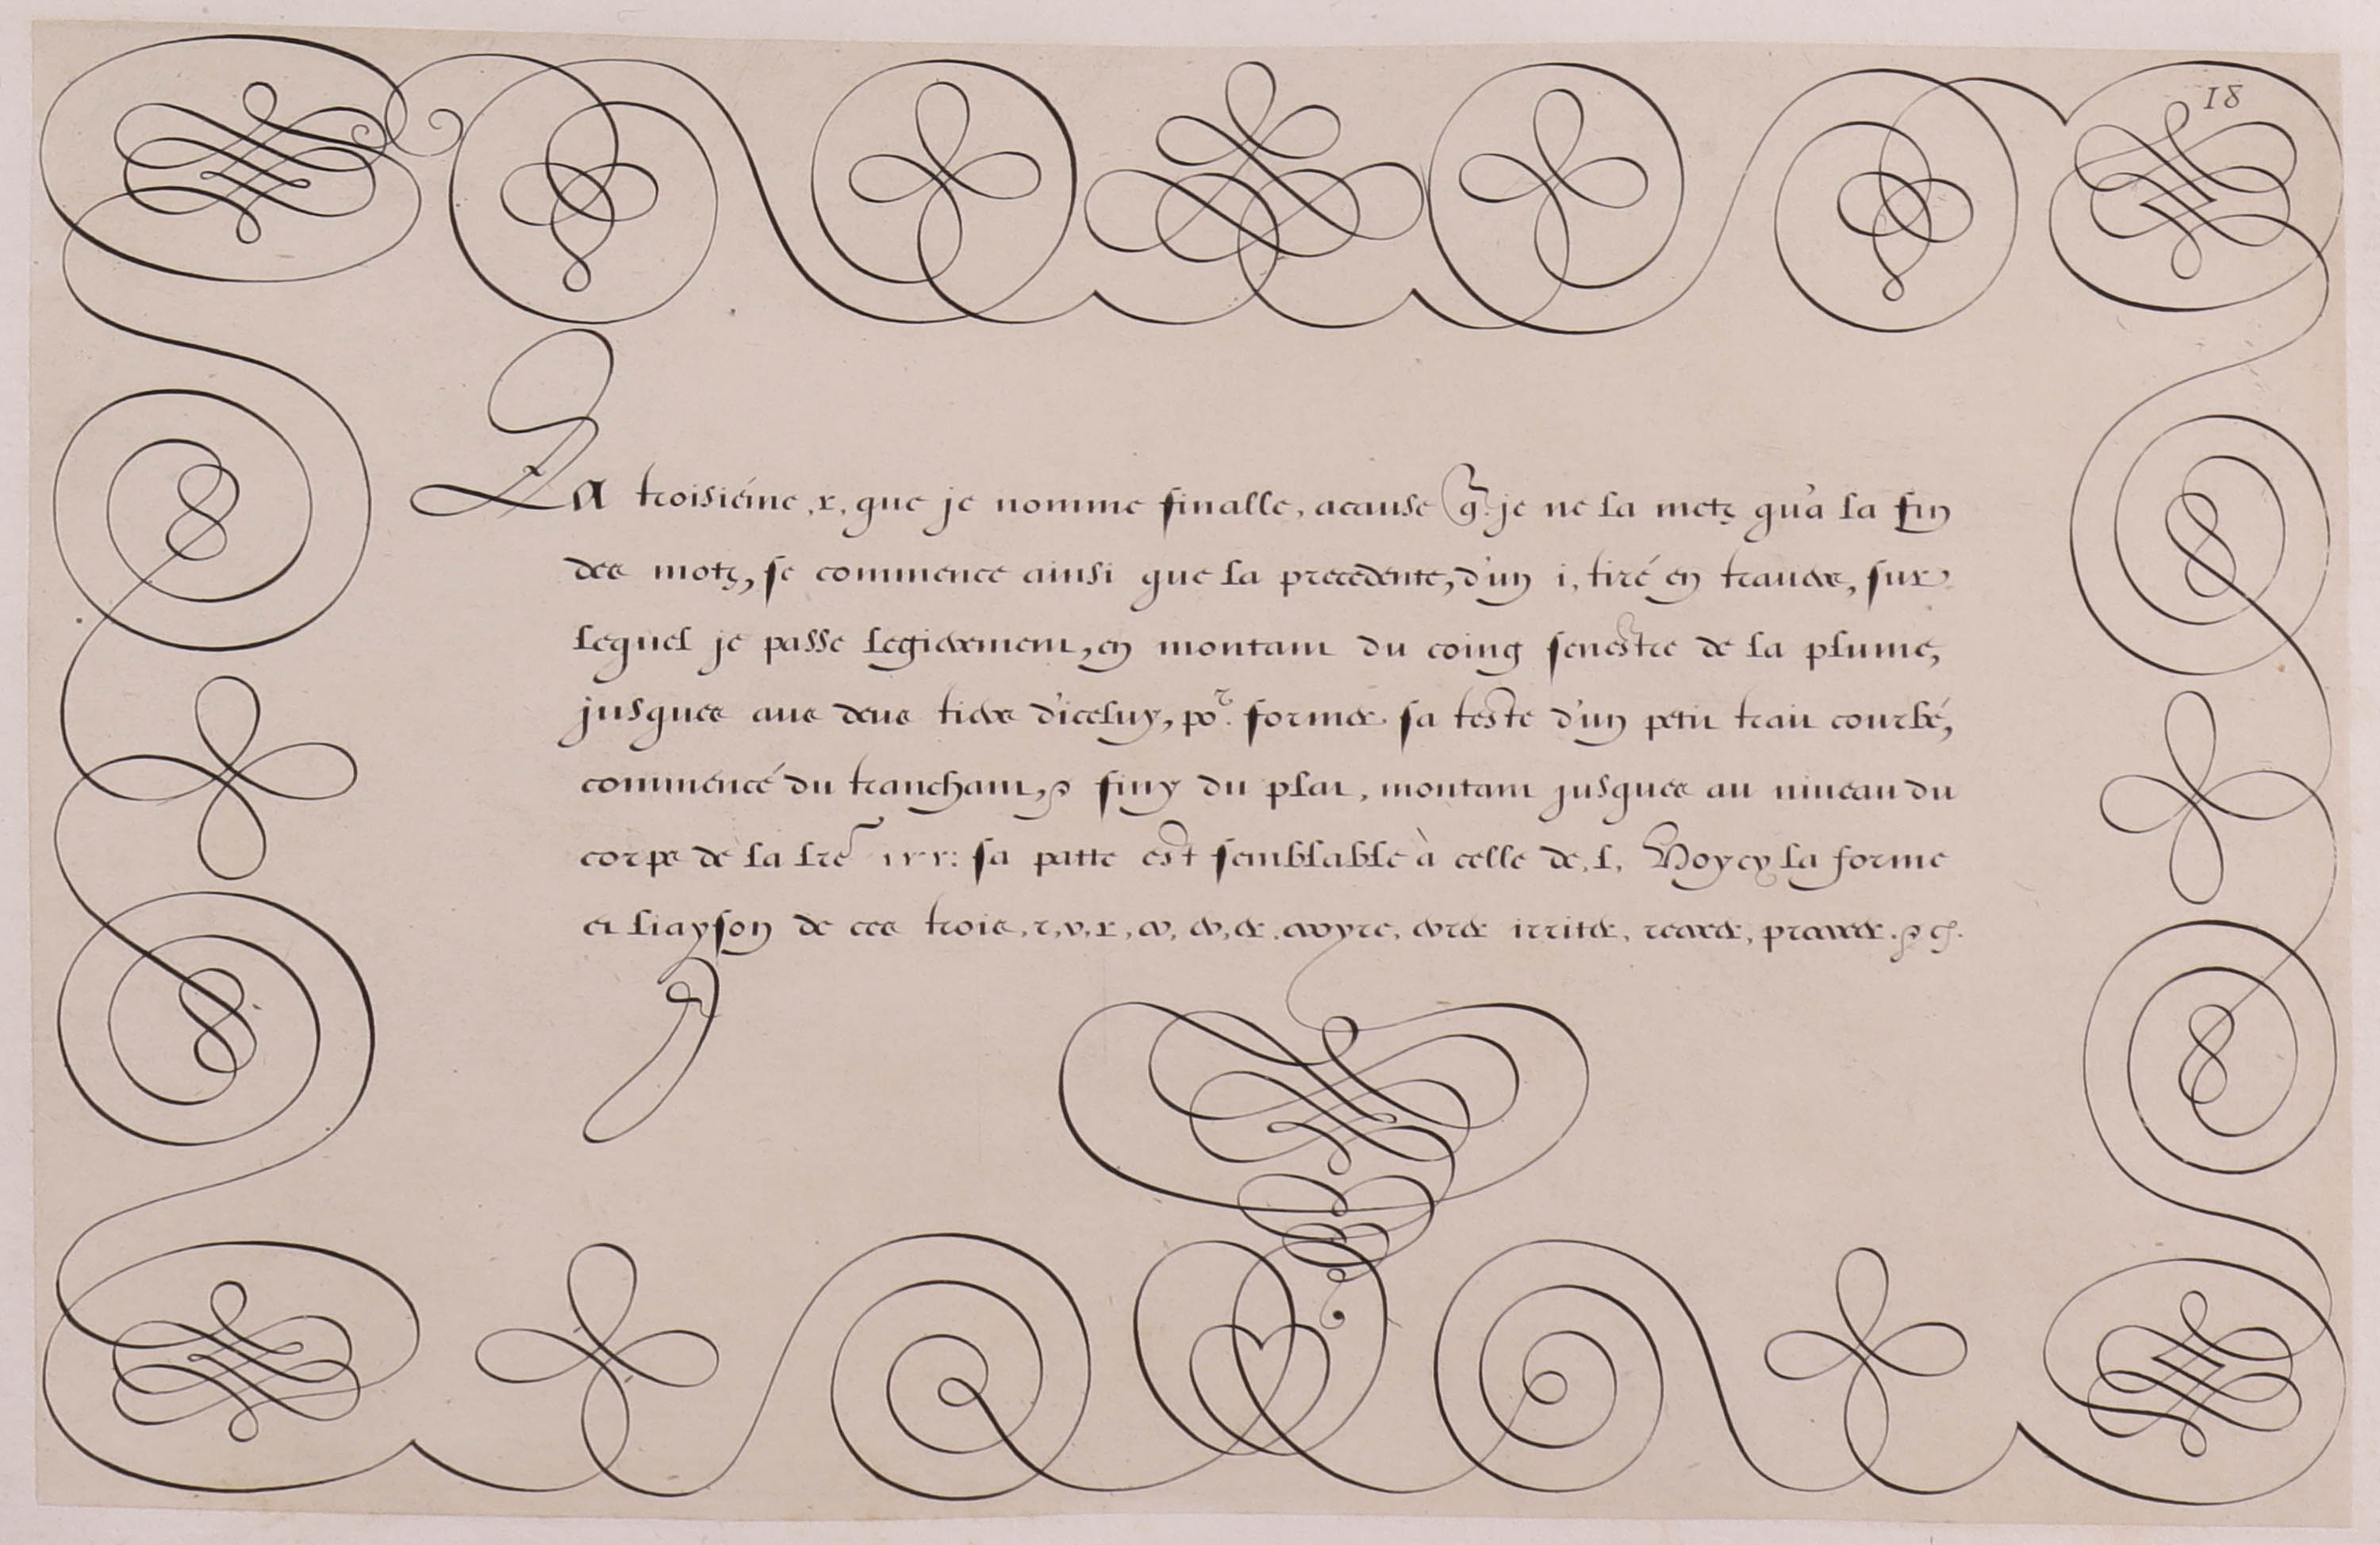 18
La troisiéme, r, que je nomme finalle, acause q̃. je ne la metz qu'a la fin
des motz, se commence ainsi que la precedente, d'un i, tiré en travers, sur
lequel je passe legierement, en montant du coing senestre de la plume,
jusques aux deux tiers d'iceluy, poʳ. former sa teste d'un petit trait courbé,
commencé du tranchant, & finy du plat, montant jusques au niveau du
corps de la lr̃e ı r r: sa patte est semblable à celle de, l, Voycy la forme
et liayson de ces trois, r, v, r, er, irriter, &c.